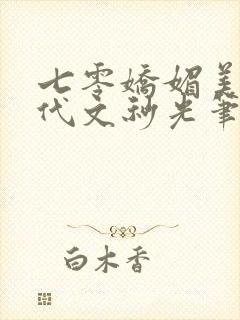 七零嬌媚美
代文秒光筆
白木香